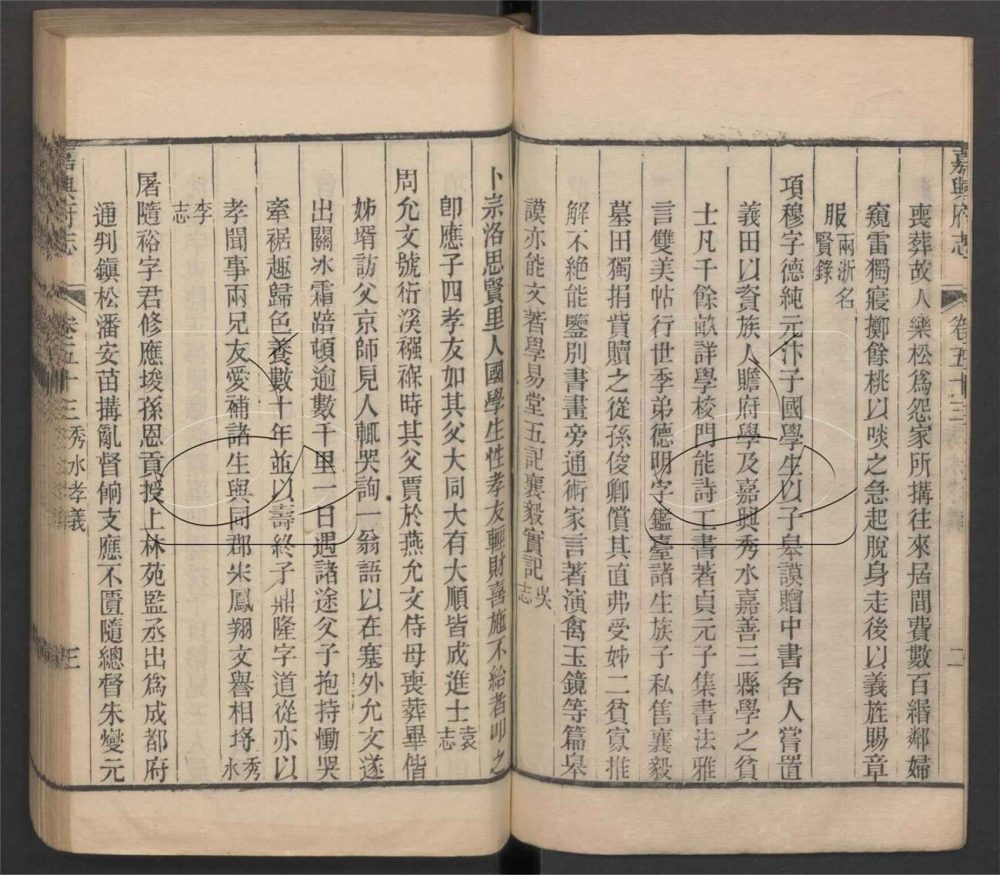 嘉興府志 卷五十三 二
喪葬故人樂松爲怨家所搆往來居間費數百緡鄰婦
窺雷獨寢擲餘桃以啖之急起脫身走後以義旌賜章
服兩浙名賢錄
項穆字德純元汴子國學生以子皋謨贈中書舍人嘗置
義田以資族人贍府學及嘉興秀水嘉善三縣學之貧
士凡千餘畝詳學校門能詩工書著貞元子集書法雅
言雙美帖行世季弟德明字鑑臺諸生族子私售襄毅
墓田獨捐貲贖之從孫俊卿償其直弗受姊二貧寡推
解不絶能鑒別書畫旁通術家言著演禽玉鏡等篇皋
謨亦能文著學易堂五記襄毅實記吳志
卜宗洛思賢里人國學生性孝友輕財喜施不給者叩之
卽應子四孝友如其父大同大有大順皆成進士袁志
周允文號衍溪襁褓時其父賈於燕允文侍母喪葬畢偕
姊壻訪父京師見人輒哭詢一翁語以在塞外允文遂
出關冰霜踣頓逾數千里一日遇諸途父子抱持慟哭
牽裾趣歸色養數十年並以壽終子鼎隆字道從亦以
孝聞事兩兄友愛補諸生與同郡朱鳳翔文譽相埒秀水
李志
屠隨裕字君修應埈孫恩貢授上林苑監丞出爲成都府
通判鎮松潘安苗搆亂督餉支應不匱隨總督朱燮元
嘉興府志 卷五十三 秀水孝義 三